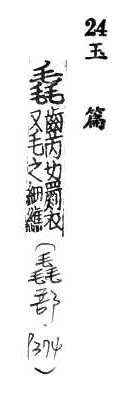 24 玉篇
毳 齒芮切罽衣
又毛之細
(毳部·P374)